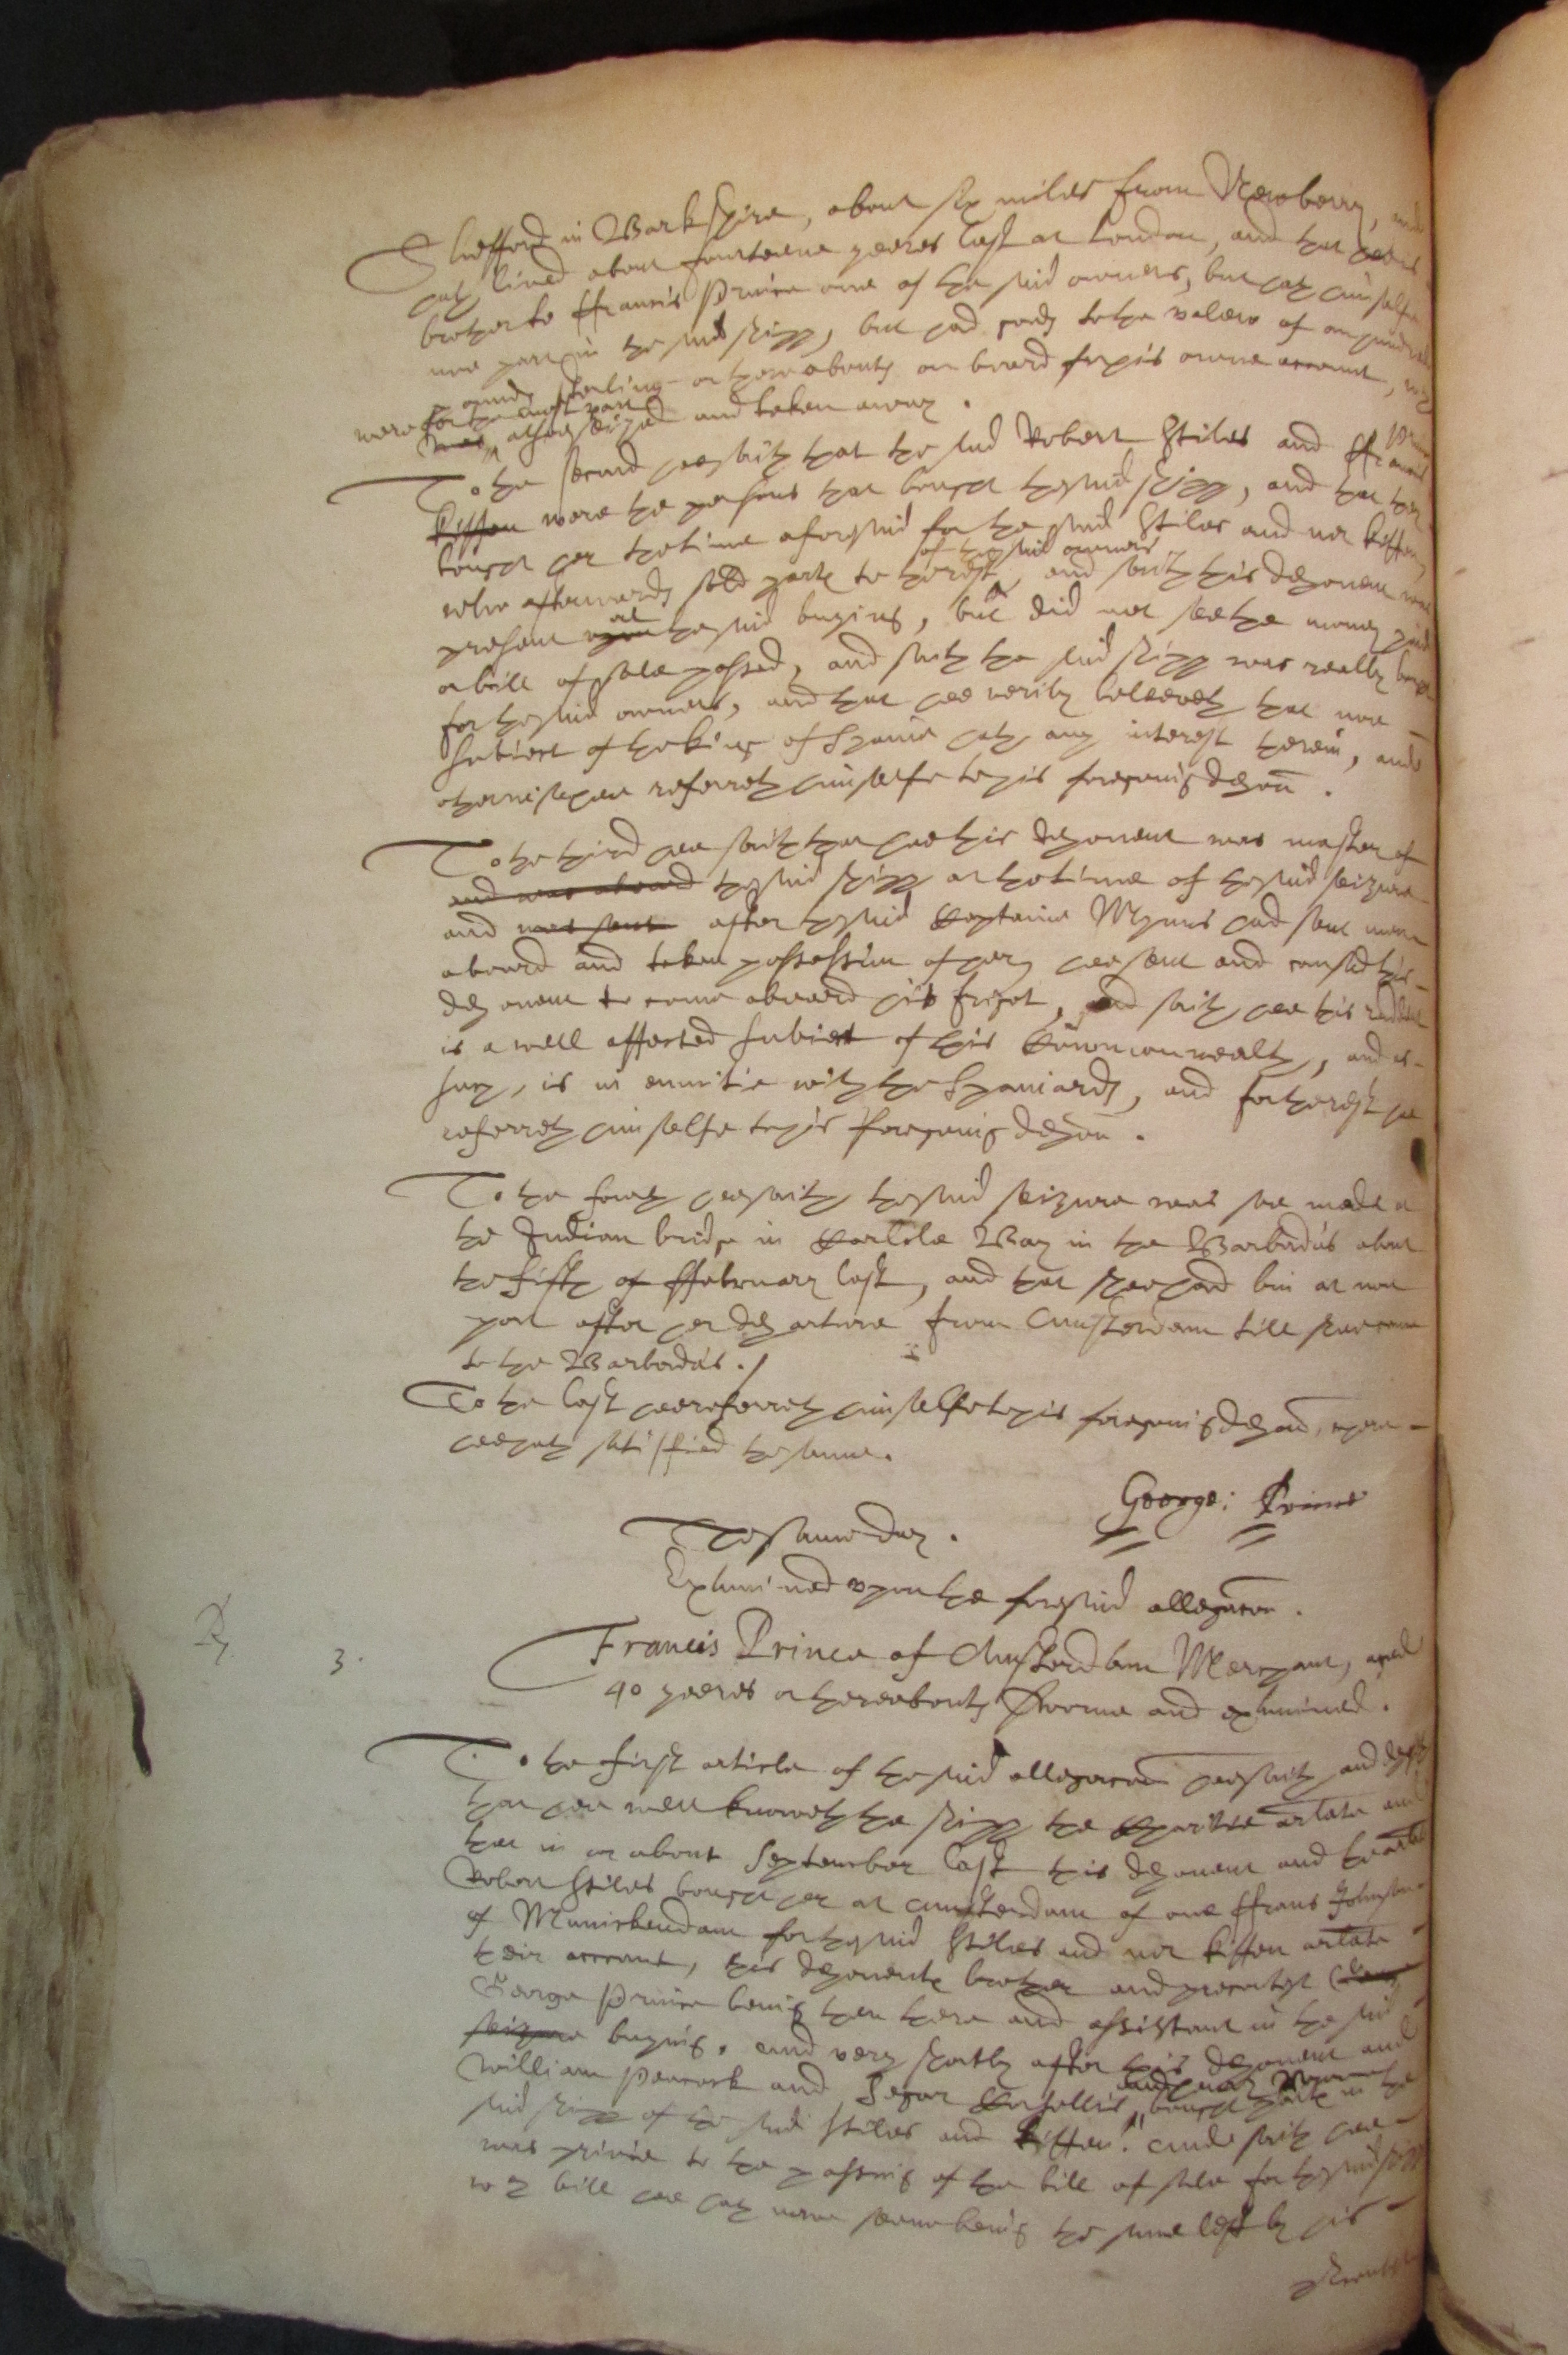 Shefford in Barkshire, about six miles from Newberry, and
hath lived about fourteene yeeres last at London, and that hee is
brother to ffrancis Prince one of the said owners, but hath himselfe
noe part in the said shipp, but had goods to the valew of an hundred
pounds sterling or thereabouts on board for his owne account, which
were for the most part
was alsoe seized and taken away.
To the second hee saith that the said Robert Stiles and ffrancis Prince
Kiffen were the persons that bought the said shipp, and that they
bought her the time aforesaid for the said Stiles and mr Kiffen,
who afterwards sold parte to the rest of the said owners, and saith this deponent was
present at the said buying, but did not see the money paid
or bill of sale passed, and saith the said shipp was really bought
for the said owners, and that hee verily beleeveth that noe
subiect of the king of Spaine hath any interest therein, and
otherwise hee referreth himselfe to his foregoing deposn.
To the third hee saith that hee this deponent was master of
and was aboard the said shipp at the time of the said seizure
and was sent after the said Captaine Mynns had sent men
aboard and taken possession of her, hee sent and caused this
deponent to come aboard his frigot, and saith hee this rendent
is a well affected subiect of this Commonwealth, and as
such, is in enmitie with the Spaniards, and for the rest hee
referreth himselfe to his foregoing deposn.
To the fourth hee saith the said seizure was soe made at
the Indian bridge in Carlile Bay in the Barbadas about
the fifth of ffebruary last, and that shee had bin at noe
port after her departure from Amsterdam till shee came
to the Barbadas./
To the last hee referreth himselfe to his foregoing deposn, where
hee hath satisfied the same.
George: Prince
The same day.
Examined upon the foresaid allegacon.
3.
Francis Prince of Amsterdam Merchant, aged
40 yeeres or thereabouts sworne and examined.
To the first article of the said allegacon hee saith and deposeth
that hee well knoweth the shipp the Charitie arlate and
that in or about September last this deponent and the arlate
Robert Stiles bought her at Amsterdam of one ffrans Johnson
of Munickendam for the said Stiles and mr Kiffen arlate
their account, this deponents brother and precontest
George Prince being then there and assistant in the said
seizure buying. and very shortly after this deponent and
William Peacock and Segar Corsellis bought parte in the
said shipp of the said Stiles and Kiffen. And saith hee
was privie to the passing of the bill of sale for the said shipp
wch bill hee hath now seene being the same left by his